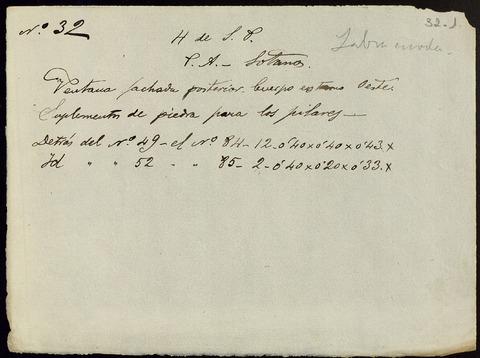 32-1.
Nº 32
4 de S. P.
P. A. - Sotanos.
Ventana fachada posterior. Cuerpo extremo Oeste.
Suplementos de piedra para los pilares -
Detrás del Nº 49 - el Nº 84 - 12 - 0'40 x 0'40 x 0'43. x
Id " " 52 - " 85 - 2 - 0'40 x 0'20 x 0'33. x